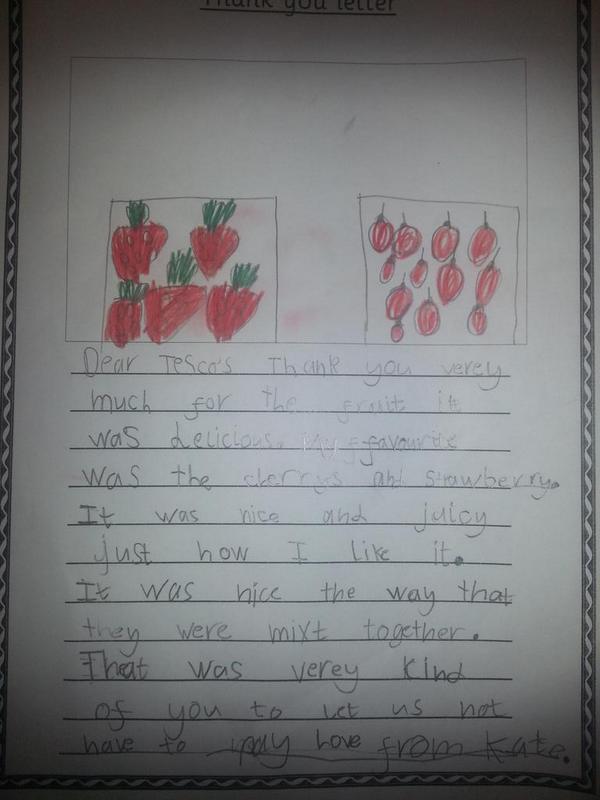 Thank you letter
Dear Tesco's Thank you verey
much for the fruit it
was delicious. My favourite
was the cherrys and strawberry.
It was nice and juicy
just how I like it.
It was nice the way that
they were mixt together.
That was verey kind
of you to let us not
have to pay love from Kate.